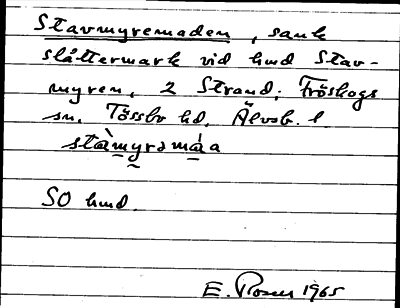 Stavmyremaden, sank
slåttermark vid hmd Stav-
myren, 2 Strand; Fröskogs
sn. Tössbo hd. Älvsb. l.
stàmyrəmáa
SO hmd.
E. Rosen 1965